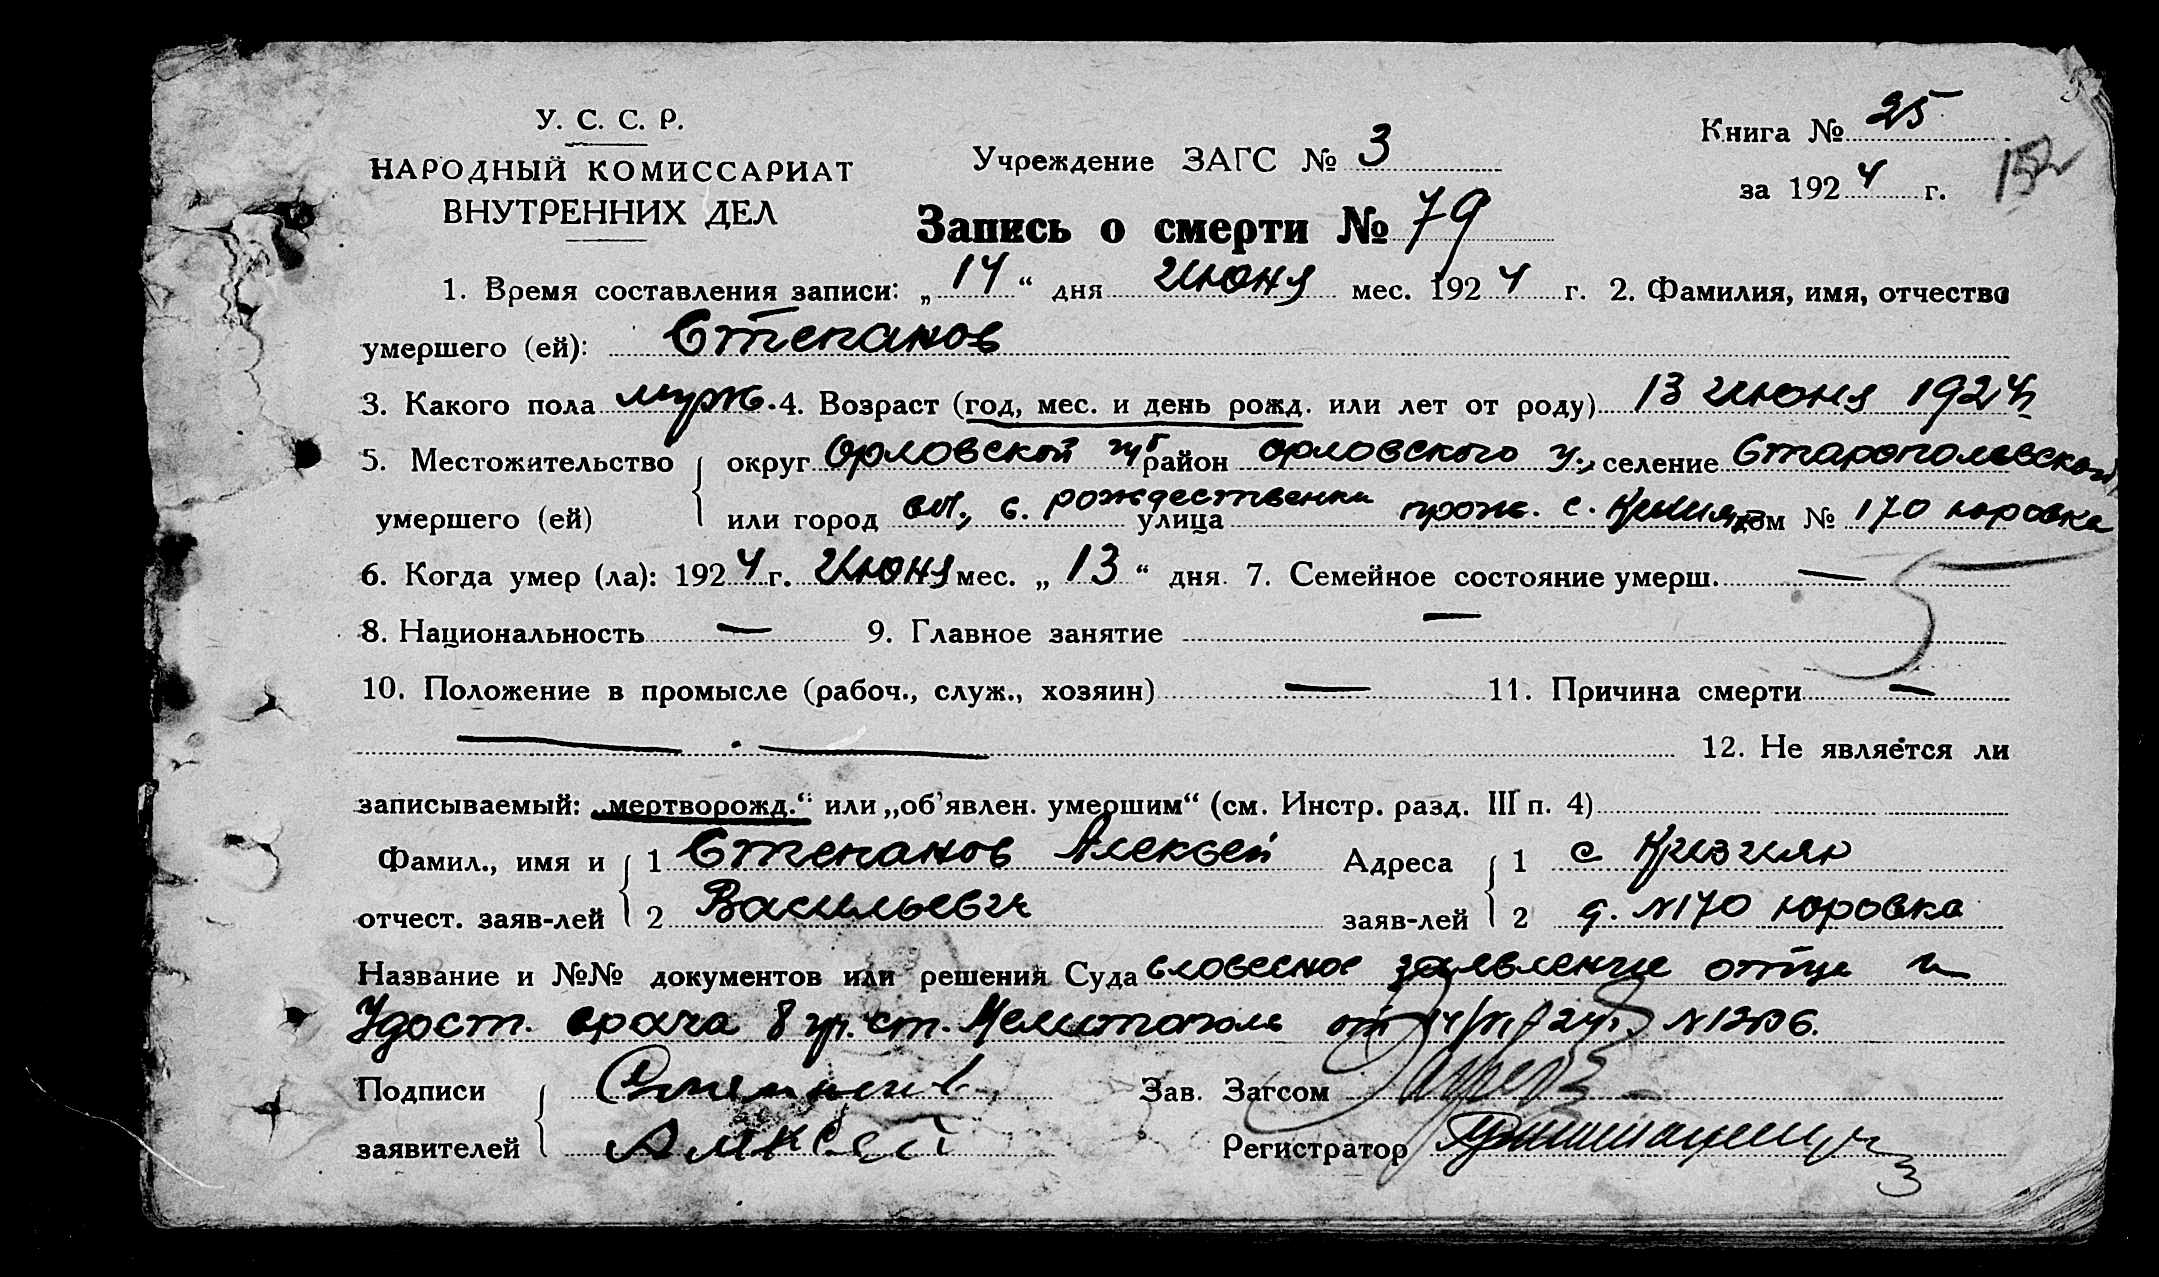 У. С. С. Р.
НАРОДНЫЙ КОМИССАРИАТ
ВНУТРЕННИХ ДЕЛ
Учреждение ЗАГС № 3
Книга № 25
за 1924 г.
152
Запись о смерти № 79
1. Время составления записи: „14“ дня Июня мес. 1924 г. 2. Фамилия, имя, отчество
умершего (ей): Степанов
3. Какого пола мужс. 4. Возраст (год, мес. и день рожд. или лет от роду) 13 июня 1924
5. Местожительство округ Орловской губ район орловского у., селение Старопольской
умершего (ей) или город вол., с. рождественки улица прож. с. Кизияр дом № 170 юровка
6. Когда умер (ла): 1924 г. Июня мес. „13“ дня. 7. Семейное состояние умерш. —
8. Национальность — 9. Главное занятие —
5
10. Положение в промысле (рабоч., служ., хозяин) — 11. Причина смерти —
12. Не является ли
записываемый: „мертворожд.“ или „об'явлен. умершим“ (см. Инстр. разд. III п. 4)
Фамил., имя и 1 Степанов Алексей Адреса 1 с Кизияр
отчест. заяв-лей 2 Васильевич заяв-лей 2 д. №170 юровка
Название и №№ документов или решения Суда словесное заявление отца и
Удост. врача 8 уч. ст. Мелитополь от 14/VI 24 г. №
Подписи Степанов Зав. Загсом
заявителей Алексей Регистратор